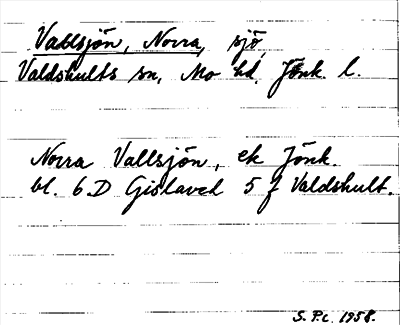 Vallsjön, Norra, sjö
Valdshults sn, Mo hd, Jönk. l.
Norra Vallsjön, ek Jönk.
bl. 6 D Gislaved 5 f Valdshult.
S. P:c. 1958.